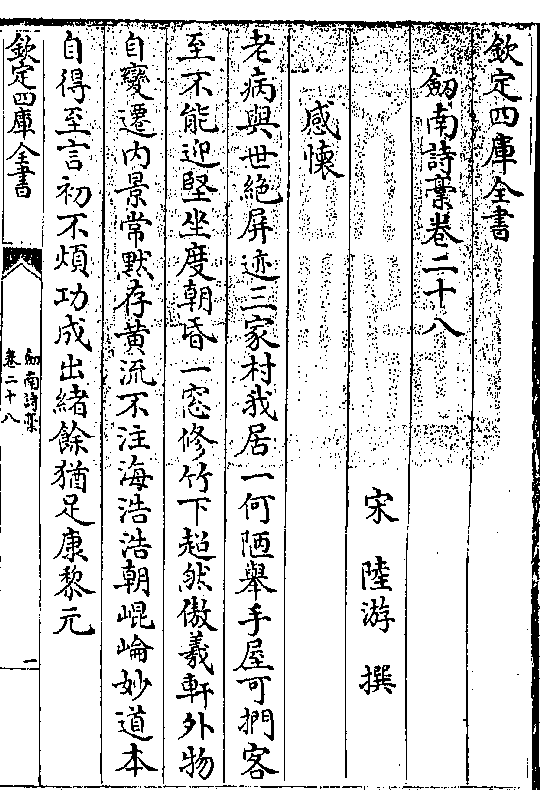 欽定四庫全書
劒南詩藁卷二十八
宋陸游撰
感懷
老病與世絶屏迹三家村我居一何陋舉手屋可捫客
至不能迎堅坐度朝昏一窓修竹下超然傲羲軒外物
自變遷内景常默存黄流不注海浩浩朝崐崘妙道本
自得至言初不煩功成出緒餘猶足康黎元
欽定四庫全書
劒南詩藁
卷二十八
一